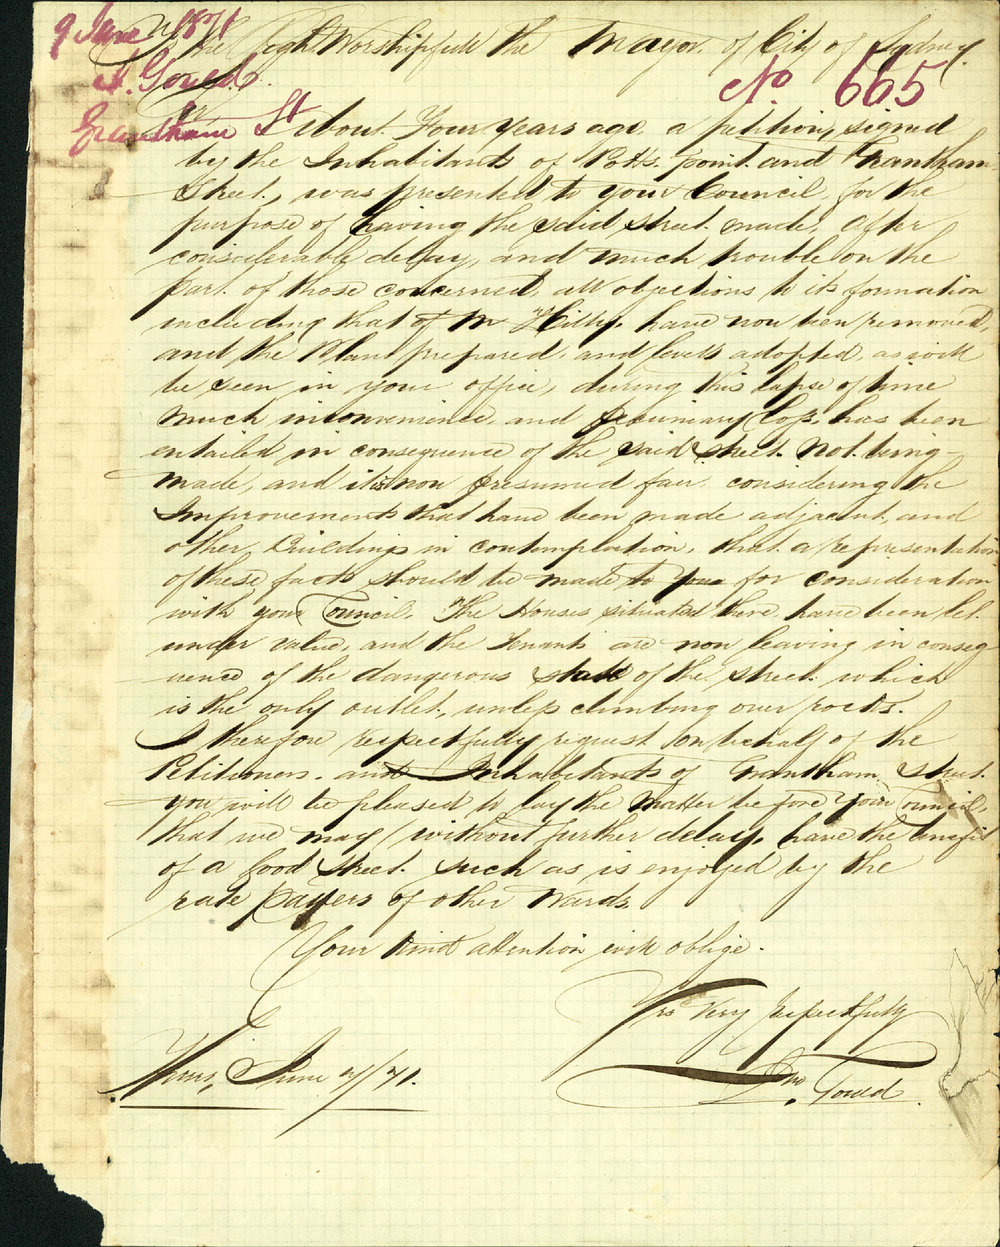 9 June 1871
To the Right Worshipfull the Mayor. of City of Sydney.
No 665
A. Gould
Grantham St
Sir,
About Four years ago a petition, signed
by the Inhabitants of Potts point and Grantham
Street, was presented to your Council, for the
purpose of having the said street made, After
considerable delay, and much trouble on the
part of those concerned, all objections to its formation
including that of Mr Hilly, have now been removed,
and the Plan prepared, and levels adopted, as will
be seen in your office, during this lapse of time
much inconvenience, and pecuniary loss, has been
entailed in consequence of the said street not being
made, and it is now presumed fair, considering the
Improvements that have been made adjacent, and
other Buildings in contemplation, that a representation
of these facts should be made to you for consideration
with your Council. The Houses situated there, have been let
under value, and the Tenants are now leaving in conseq
uence of the dangerous state of the street which
is the only outlet, unless climbing over rocks.
I therefore respectfully request on behalf of the
Petitioners and Inhabitants of Grantham Street
you will be pleased to lay the matter before your Council,
that we may (without further delay, have the benefit
of a Good Street. such as is enjoyed by the
rate payers of other Wards.
Your kind attention will oblige.
Yrs Very respectfully
Jno Gould
June 9/71.